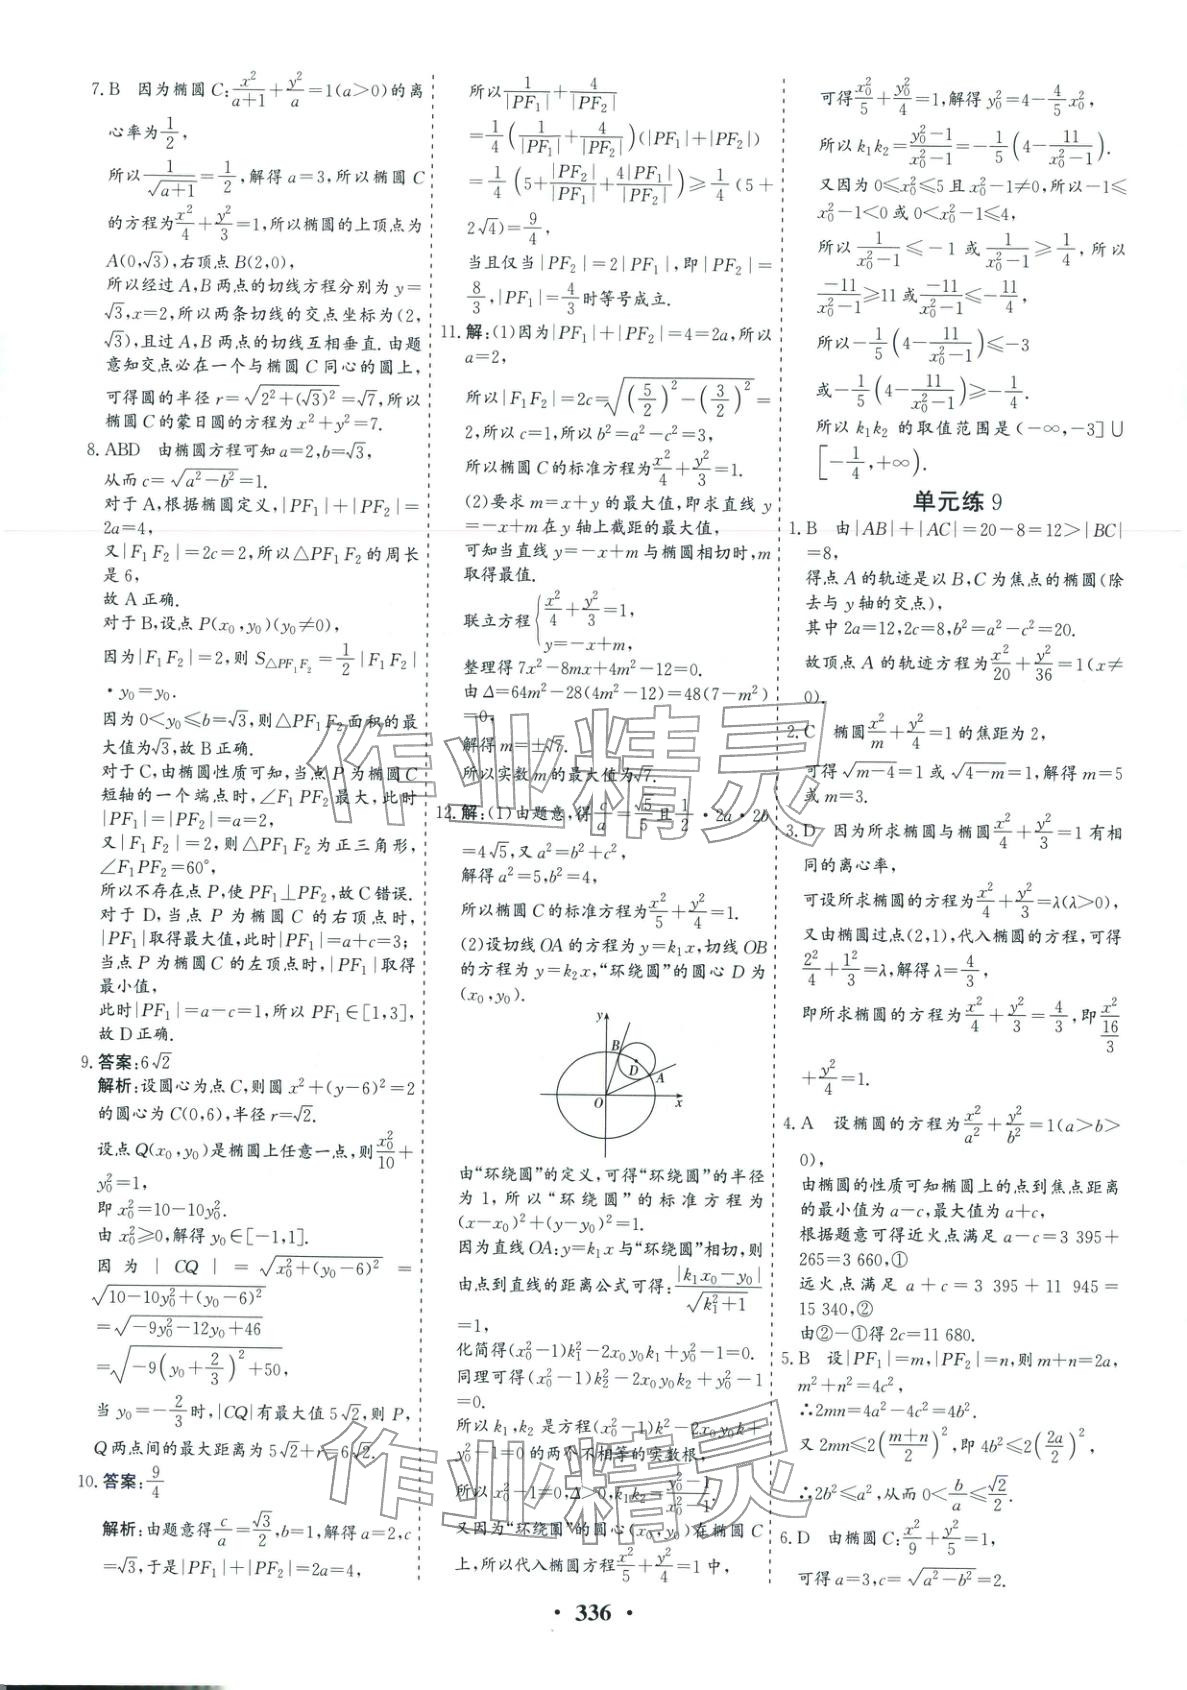 7. B 因为椭圆C:x²/(a+1)+y²/a=1(a>0)的离
心率为1/2,
所以1/√(a+1)=1/2,解得a=3,所以椭圆C
的方程为x²/4+y²/3=1,所以椭圆的上顶点为
A(0,√3),右顶点B(2,0),
所以经过A,B两点的切线方程分别为y=
√3,x=2,所以两条切线的交点坐标为(2,
√3),且过A,B两点的切线互相垂直.由题
意知交点必在一个与椭圆C同心的圆上,
可得圆的半径r=√(2²+(√3)²)=√7,所以
椭圆C的蒙日圆的方程为x²+y²=7.
8. ABD 由椭圆方程可知a=2,b=√3,
从而c=√(a²-b²)=1.
对于A,根据椭圆定义,|PF₁|+|PF₂|=
2a=4,
又|F₁F₂|=2c=2,所以△PF₁F₂的周长
是6,
故A正确.
对于B,设点P(x₀,y₀)(y₀≠0),
因为|F₁F₂|=2,则S△PF₁F₂=1/2|F₁F₂|
·y₀=y₀.
因为0<y₀≤b=√3,则△PF₁F₂面积的最
大值为√3,故B正确.
对于C,由椭圆性质可知,当点P为椭圆C
短轴的一个端点时,∠F₁PF₂最大,此时
|PF₁|=|PF₂|=a=2,
又|F₁F₂|=2,则△PF₁F₂为正三角形,
∠F₁PF₂=60°,
所以不存在点P,使PF₁⊥PF₂,故C错误.
对于D,当点P为椭圆C的右顶点时,
|PF₁|取得最大值,此时|PF₁|=a+c=3;
当点P为椭圆C的左顶点时,|PF₁|取得
最小值,
此时|PF₁|=a-c=1,所以PF₁∈[1,3],
故D正确.
9. 答案:6√2
解析:设圆心为点C,则圆x²+(y-6)²=2
的圆心为C(0,6),半径r=√2.
设点Q(x₀,y₀)是椭圆上任意一点,则x₀²/10+
y₀²=1,
即x₀²=10-10y₀².
由x₀²≥0,解得y₀∈[-1,1].
因为|CQ|=√(x₀²+(y₀-6)²)=
√(10-10y₀²+(y₀-6)²)
=√(-9y₀²-12y₀+46)
=√(-9(y₀+2/3)²+50),
当y₀=-2/3时,|CQ|有最大值5√2,则P,
Q两点间的最大距离为5√2+r=6√2.
10. 答案:9/4
解析:由题意得c/a=√3/2,b=1,解得a=2,c
=√3,于是|PF₁|+|PF₂|=2a=4,
所以1/|PF₁|+4/|PF₂|
=1/4(1/|PF₁|+4/|PF₂|)(|PF₁|+|PF₂|)
=1/4(5+|PF₂|/|PF₁|+4|PF₁|/|PF₂|)≥1/4(5+
2√4)=9/4,
当且仅当|PF₂|=2|PF₁|,即|PF₂|=
8/3,|PF₁|=4/3时等号成立.
11. 解:(1)因为|PF₁|+|PF₂|=4=2a,所以
a=2,
所以|F₁F₂|=2c=√((5/2)²-(3/2)²)=
2,所以c=1,所以b²=a²-c²=3,
所以椭圆C的标准方程为x²/4+y²/3=1.
(2)要求m=x+y的最大值,即求直线y
=-x+m在y轴上截距的最大值,
可知当直线y=-x+m与椭圆相切时,m
取得最值.
联立方程{x²/4+y²/3=1,
y=-x+m,
整理得7x²-8mx+4m²-12=0.
由Δ=64m²-28(4m²-12)=48(7-m²)
=0,
解得m=±√7.
所以实数m的最大值为√7.
12. 解:(1)由题意,得c/a=√5/5且1/2·2a·2b
=4√5,又a²=b²+c²,
解得a²=5,b²=4,
所以椭圆C的标准方程为x²/5+y²/4=1.
(2)设切线OA的方程为y=k₁x,切线OB
的方程为y=k₂x,“环绕圆”的圆心D为
(x₀,y₀).
y
B
D
A
O
x
由“环绕圆”的定义,可得“环绕圆”的半径
为1,所以“环绕圆”的标准方程为
(x-x₀)²+(y-y₀)²=1.
因为直线OA:y=k₁x与“环绕圆”相切,则
由点到直线的距离公式可得:|k₁x₀-y₀|/√(k₁²+1)
=1,
化简得(x₀²-1)k₁²-2x₀y₀k₁+y₀²-1=0.
同理可得(x₀²-1)k₂²-2x₀y₀k₂+y₀²-1
=0.
所以k₁,k₂是方程(x₀²-1)k²-2x₀y₀k+
y₀²-1=0的两个不相等的实数根,
所以x₀²-1≠0,Δ>0,k₁k₂=(y₀²-1)/(x₀²-1).
又因为“环绕圆”的圆心(x₀,y₀)在椭圆C
上,所以代入椭圆方程x²/5+y²/4=1中,
可得x₀²/5+y₀²/4=1,解得y₀²=4-4/5x₀²,
所以k₁k₂=(y₀²-1)/(x₀²-1)=-1/5(4-11/(x₀²-1)).
又因为0≤x₀²≤5且x₀²-1≠0,所以-1≤
x₀²-1<0或0<x₀²-1≤4,
所以1/(x₀²-1)≤-1或1/(x₀²-1)≥1/4,所以
-11/(x₀²-1)≥11或-11/(x₀²-1)≤-11/4,
所以-1/5(4-11/(x₀²-1))≤-3
或-1/5(4-11/(x₀²-1))≥-1/4.
所以k₁k₂的取值范围是(-∞,-3]∪
[-1/4,+∞).
单元练9
1. B 由|AB|+|AC|=20-8=12>|BC|
=8,
得点A的轨迹是以B,C为焦点的椭圆(除
去与y轴的交点),
其中2a=12,2c=8,b²=a²-c²=20.
故顶点A的轨迹方程为x²/20+y²/36=1(x≠
0).
2. C 椭圆x²/m+y²/4=1的焦距为2,
可得√(m-4)=1或√(4-m)=1,解得m=5
或m=3.
3. D 因为所求椭圆与椭圆x²/4+y²/3=1有相
同的离心率,
可设所求椭圆的方程为x²/4+y²/3=λ(λ>0),
又由椭圆过点(2,1),代入椭圆的方程,可得
2²/4+1²/3=λ,解得λ=4/3,
即所求椭圆的方程为x²/4+y²/3=4/3,即x²/(16/3)
+y²/4=1.
4. A 设椭圆的方程为x²/a²+y²/b²=1(a>b>
0),
由椭圆的性质可知椭圆上的点到焦点距离
的最小值为a-c,最大值为a+c,
根据题意可得近火点满足a-c=3 395+
265=3 660,①
远火点满足a+c=3 395+11 945=
15 340,②
由②-①得2c=11 680.
5. B 设|PF₁|=m,|PF₂|=n,则m+n=2a,
m²+n²=4c²,
∴2mn=4a²-4c²=4b².
又2mn≤2((m+n)/2)²,即4b²≤2(2a/2)²,
∴2b²≤a²,从而0<b/a≤√2/2.
6. D 由椭圆C:x²/9+y²/5=1,
可得a=3,c=√(a²-b²)=2.
· 336 ·
作业精灵
作业精灵